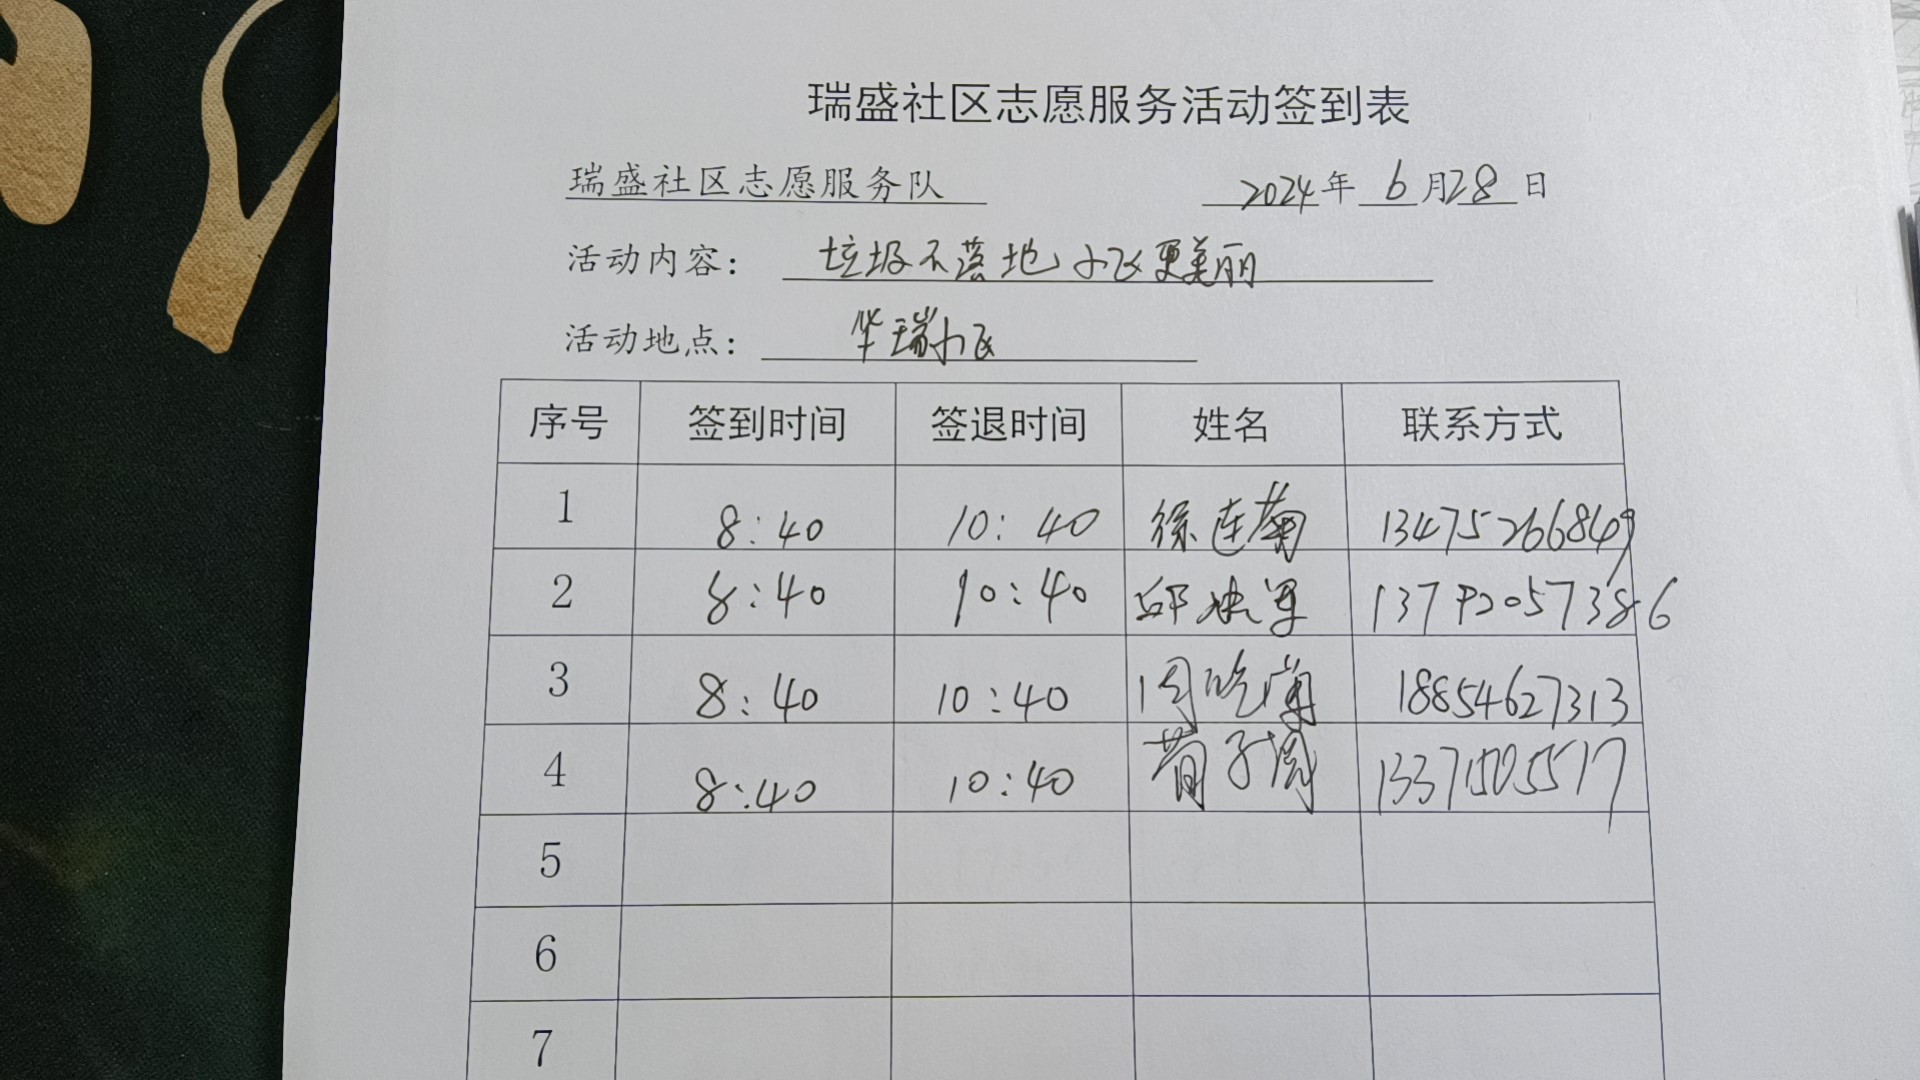 瑞盛社区志愿服务活动签到表
瑞盛社区志愿服务队 2024年 6月28日
活动内容： 垃圾不落地 小区更美丽
活动地点： 华瑞小区
序号 签到时间 签退时间 姓名 联系方式
1 8:40 10:40 徐连菊 13475266849
2 8:40 10:40 邱 军
3 8:40 10:40 周晓萍 18854627313
4 8:40 10:40 13371505517
5
6
7